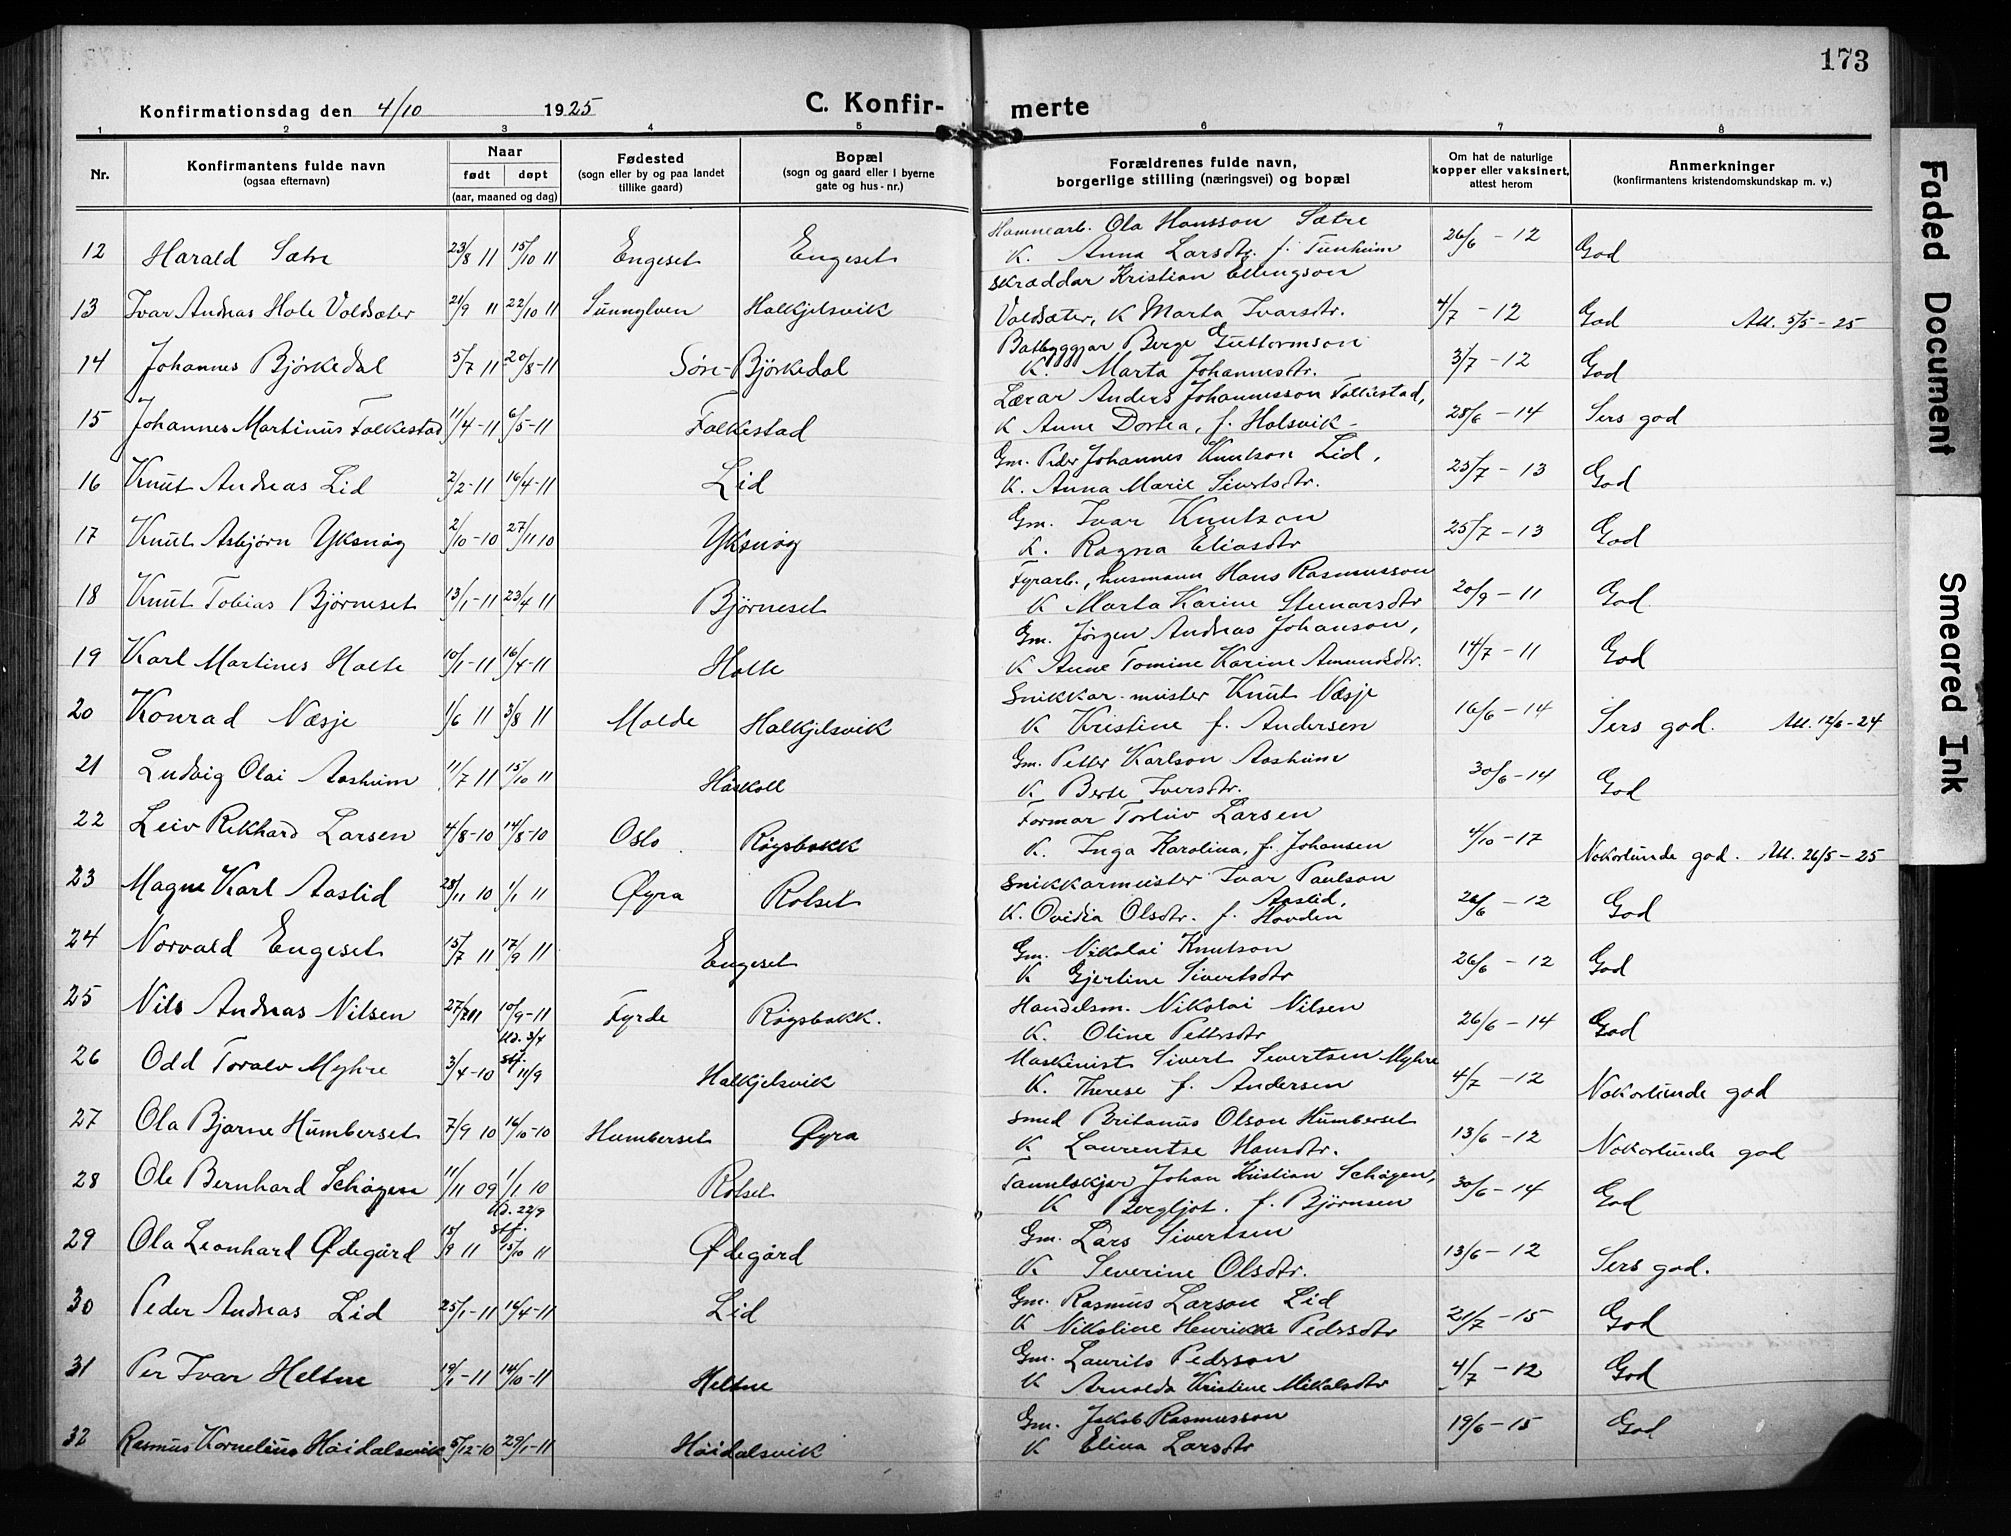 173
Konfirmationsdag den 4/10 1925 C. Konfir- merte
1 2 3 4 5 6 7 8
Nr. Konfirmantens fulde navn (ogsaa efternavn) Naar født døpt (aar, maaned og dag) Fødested (sogn eller by og paa landet tillike gaard) Bopæl (sogn og gaard eller i byerne gate og hus-nr.) Forældrenes fulde navn, borgerlige stilling (næringsvei) og bopæl Om hat de naturlige kopper eller vaksinert, attest herom Anmerkninger (konfirmantens kristendomskundskap m. v.)
Hamnearb. Ola Hansson Sætre
12 Harald Sætre 23/8 11 15/10 11 Engeset Engeset K. Anna Larsdtr. f. Tunheim 26/6 - 12 God
Skræddar Kristian Ellingson
13 Ivar Andreas Hole Voldsæter 21/9 11 22/10 11 Sunnylven Halkjelsvik Voldsæter, K Marta Ivarsdtr. 4/7 - 12 God Att. 5/5 - 25
Båtbyggjar Berge Guttormson
14 Johannes Bjørkedal 5/7 11 20/8-11 Søre-Bjørkedal K. Marta Johannesdtr. 3/7 - 12 God
Lærar Anders Johannesson Folkestad,
15 Johannes Martinus Folkestad 11/4-11 6/5-11 Folkestad K Anne Dortea, f. Holsvik 28/6 - 14 Sers god
Gm. Peder Johannes Knutson Lid,
16 Knut Andreas Lid 2/2-11 16/4-11 Lid K. Anna Marie Sivertsdtr. 25/7 - 13 God
Gm. Ivar Knutson
17 Knut Asbjørn Yksnøy 2/10-10 27/11 10 Yksnøy K. Ragna Eliasdtr 25/7 - 13 God
Fyrarb., husmann Hans Rasmusson
18 Knut Tobias Bjørneset 13/1-11 23/4 11 Bjørneset K Marta Karine Steinarsdtr 20/9 - 11 God
Gm. Jørgen Andreas Johanson,
19 Karl Martines Holte 10/1-11 16/4-11 Holte K Anne Tomine Karine Amundsdtr. 14/7 - 11 God
Snikkar-meister Knut Næsje
20 Konrad Næsje 1/6 11 3/8 11 Molde Halkjelsvik K Kristine f. Andersen 16/6 - 14 Sers god. Att. 12/6 - 24
Gm. Petter Karlson Aasheim
21 Ludvig Olai Aasheim 11/7 11 15/10 11 Håskoll K Berte Iversdtr. 30/6 - 14 God
Formar Torleiv Larsen
22 Leiv Rikhard Larsen 4/8-10 14/8-10 Oslo Røysbakk K. Inga Karolina, f. Johansen 4/10 - 17 Nokorlunde god. Att. 26/5 - 25
Snikkarmeister Ivar Paulson
23 Magne Karl Aaslid 28/11 10 1/1 11 Øyra Rotset K. Ovidia Olsdtr. f. Hovden Aaslid, 26/6 - 12 God
Gm. Nikolai Knutson
24 Norvald Engeset 15/7 11 17/9 11 Engeset K Gjertine Sivertsdtr 26/6 - 12 God
25 Nils Andreas Nilsen 27/7 11 10/9-11 Fyrde Røysbakk. Handelsm. Nikolai Nilsen
K. Oline Pettersdtr 26/6 - 14 God
26 Odd Toralv Myhre 3/4-10 Ud. 3/4 Stf. 11/9 Halkjelsvik Maskinist Sivert Sivertsen Myhre
K. Therese f. Andersen 4/7 - 12 Nokorlunde god
27 Ola Bjarne Humberset 7/9 10 16/10-10 Humberset Øyra Smed Britanus Olson Humberset
K Laurentse Hansdtr. 13/6 - 12 Nokorlunde god
28 Ole Bernhard Schøyen 11/11 09 1/1 10 Rotset Tannlækjar Johan Kristian Schøyen,
K Bergljot. f. Bjørnsen 30/6 - 14 God
29 Ola Leonhard Ødegård 15/9 11 Ud. 22/9 Stf. 15/10 11 Ødegård Gm. Lars Sivertsen
K Severine Olsdtr. 13/6 - 12 Sers god.
30 Peder Andreas Lid 25/1-11 16/4-11 Lid Gm. Rasmus Larson Lid
K Nikoline Henrikke Pedrsdtr 21/7 - 15 God
31 Per Ivar Heltne 19/1-11 14/10-11 Heltne Gm. Laurits Pedrsson
K Arnolda Kristine Mikalsdtr 4/7 - 12 God
32 Rasmus Kornelius Høidalsvik 5/12-10 29/1-11 Høidalsvik Gm. Jakob Rasmusson
K Elina Larsdtr 19/6 - 15 God
Faded Document
Smeared Ink